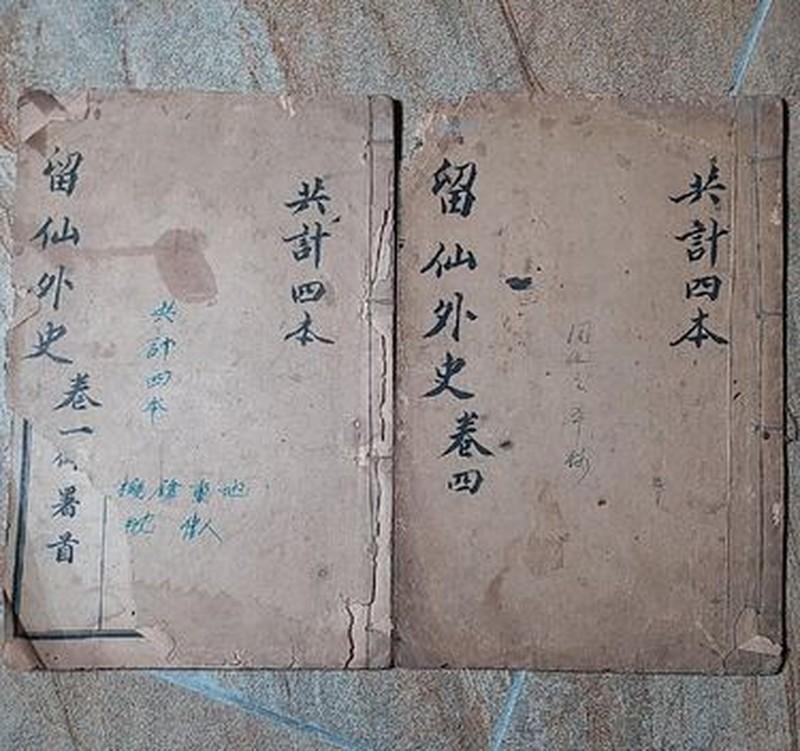 共計四本
留仙外史卷一
署首
共計四本
共計四本
留仙外史卷四